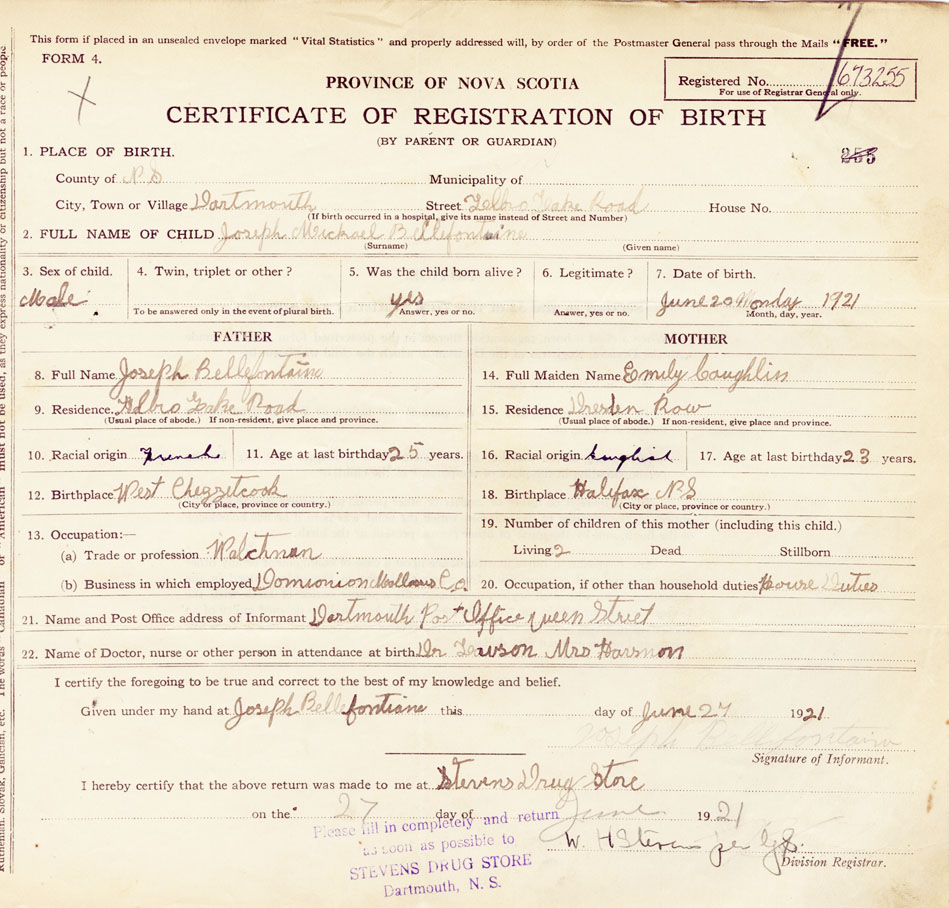 This form if placed in an unsealed envelope marked "Vital Statistics" and properly addressed will, by order of the Postmaster General pass through the Mails "FREE."
FORM 4.
PROVINCE OF NOVA SCOTIA
Registered No. 673255
For use of Registrar General only.
CERTIFICATE OF REGISTRATION OF BIRTH
(BY PARENT OR GUARDIAN)
255
1. PLACE OF BIRTH.
County of N S Municipality of
City, Town or Village Dartmouth Street Lake Road House No.
(If birth occurred in a hospital, give its name instead of Street and Number)
2. FULL NAME OF CHILD Joseph Michael Bellefontaine
(Surname) (Given name)
3. Sex of child. 4. Twin, triplet or other? 5. Was the child born alive? 6. Legitimate? 7. Date of birth.
Male yes June 20 Monday 1921
To be answered only in the event of plural birth. Answer, yes or no. Answer, yes or no. Month, day, year.
FATHER MOTHER
8. Full Name Joseph Bellefontaine 14. Full Maiden Name Emily Coughlin
9. Residence. Albro Lake Road 15. Residence Dresden Row
(Usual place of abode.) If non-resident, give place and province. (Usual place of abode.) If non-resident, give place and province.
10. Racial origin French 11. Age at last birthday 25 years. 16. Racial origin English 17. Age at last birthday 23 years.
12. Birthplace West Chezzetcook 18. Birthplace Halifax N S
(City or place, province or country.) (City or place, province or country.)
13. Occupation:— 19. Number of children of this mother (including this child.)
(a) Trade or profession Watchman Living 2 Dead Stillborn
(b) Business in which employed Domionion Co 20. Occupation, if other than household duties House Duties
21. Name and Post Office address of Informant Dartmouth Post Office Queen Street
22. Name of Doctor, nurse or other person in attendance at birth Dr Lawson Mrs Harmon
I certify the foregoing to be true and correct to the best of my knowledge and belief.
Given under my hand at Joseph Bellefontiane this day of June 27 1921
Joseph Bellefontaine
Signature of Informant.
I hereby certify that the above return was made to me at Stevens Drug Store
on the 27 day of June 1921
W. H Stevens per
Division Registrar.
Please fill in completely and return
as soon as possible to
STEVENS DRUG STORE
Dartmouth, N. S.